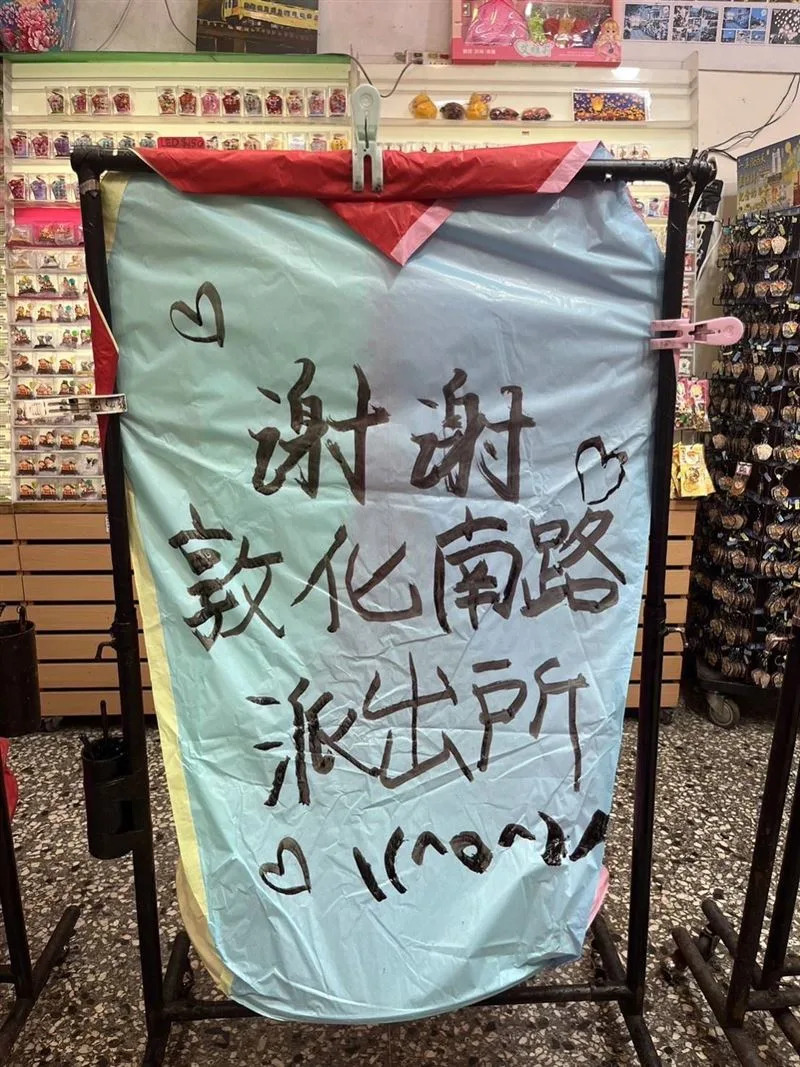 LED $150
谢谢
敦化南路
派出所
\(^o^)/